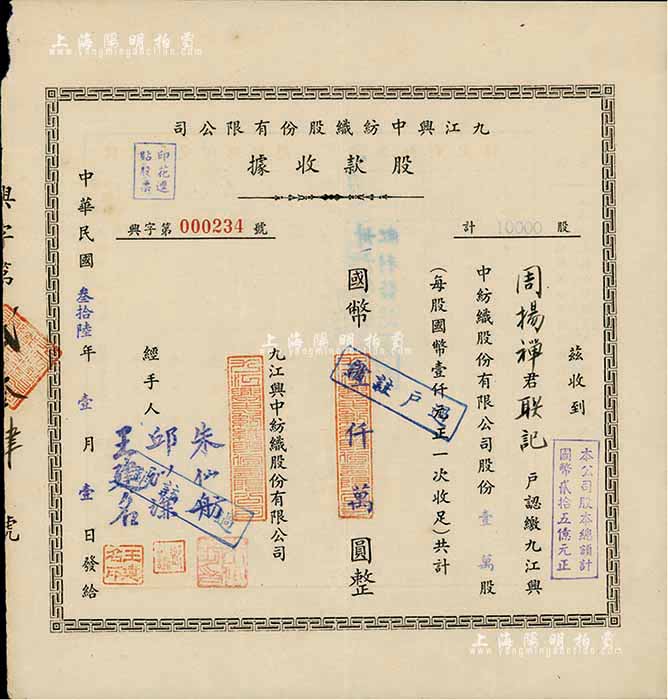 上海陽明拍賣
www.yangmingauction.com
司公限有份股織紡中興江九
據收款股
印花遵
貼股票
興字第 000234 號
計 10000 股
茲收到
周揚禪君联記 戶認繳九江興
中紡織股份有限公司股份 壹萬 股
(每股國幣壹仟元正一次收足)共計
國幣 仟萬 圓整
九江興中紡織股份有限公司
經手人
朱仙舫
邱
王建名
中華民國 叁拾陸 年 壹 月 壹 日發給
本公司股本總額計
國幣貳拾五億元正
過戶註
興字第
號
上海陽明拍賣
www.yangmingauction.com
上海陽明拍賣
www.yangmingauction.com